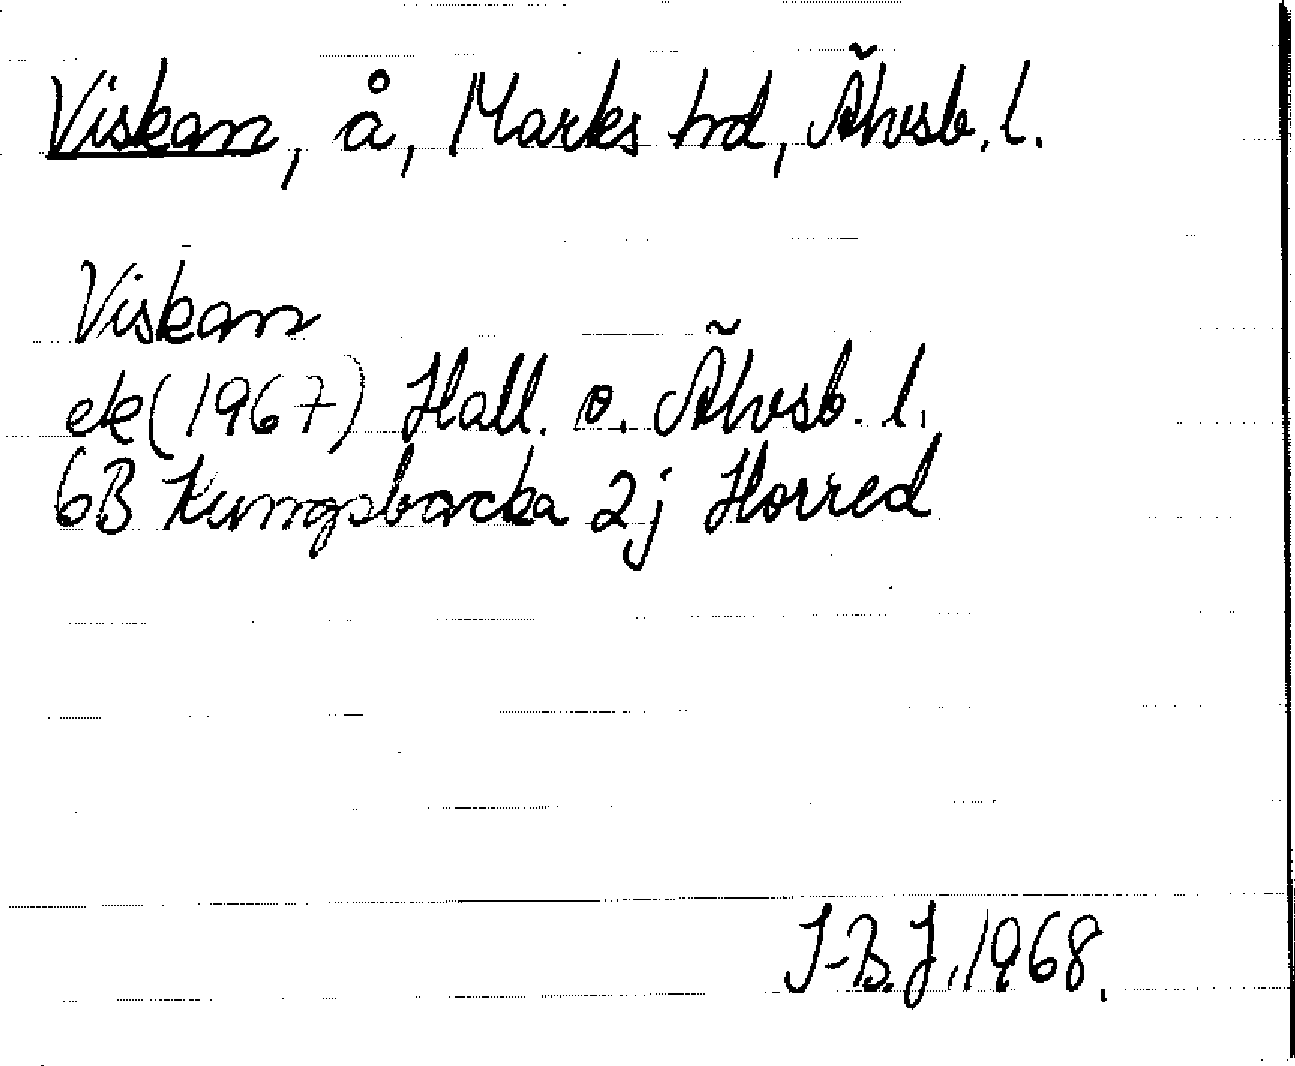 Viskan, å, Marks hd, Älvsb. l.
Viskan
ek (1967) Hall. o. Älvsb. l.
6B Kungsbacka 2j Horred
I-B.J. 1968.